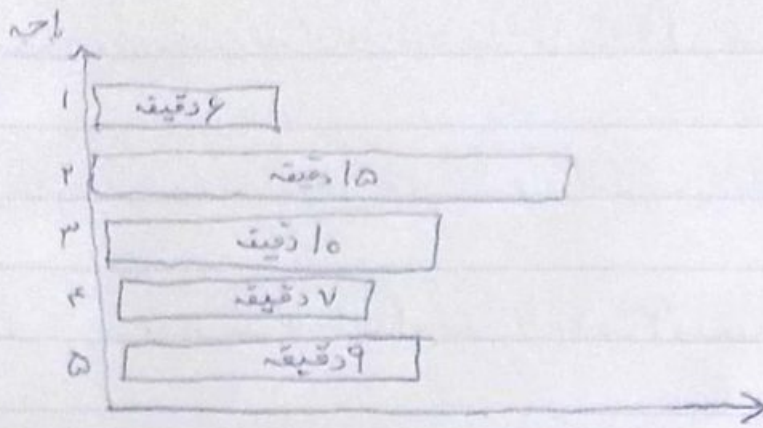 باجه
۱ ۶ دقیقه
۲ ۱۵ دقیقه
۳ ۱۰ دقیقه
۴ ۷ دقیقه
۵ ۹ دقیقه